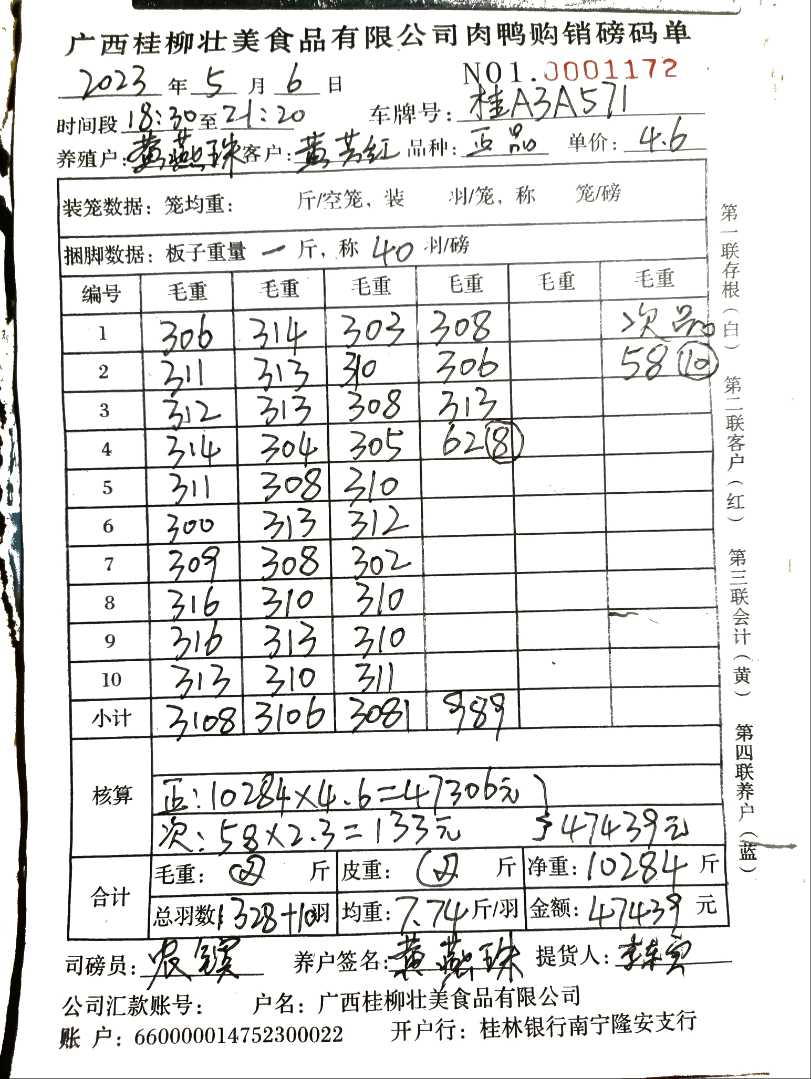 广西桂柳壮美食品有限公司肉鸭购销磅码单
2023 年 5 月 6 日 NO1.0001172
时间段 18:30 至 21:20 车牌号: 桂A3A571
养殖户: 黄燕珠 客户: 黄芸红 品种: 正品 单价: 4.6
装笼数据: 笼均重: 斤/空笼, 装 羽/笼, 称 笼/磅
捆脚数据: 板子重量 一 斤, 称 40 羽/磅
编号 毛重 毛重 毛重 毛重 毛重 毛重
1 306 314 303 308 次品
2 311 313 310 306 58 10
3 312 313 308 313
4 314 304 305 62 8
5 311 308 310
6 300 313 312
7 309 308 302
8 316 310 310
9 316 313 310
10 313 310 311
小计 3108 3106 3081 989
核算
正: 10284×4.6=47306元
次: 58×2.3=133元 } 47439元
合计
毛重: 斤 皮重: 斤 净重: 10284 斤
总羽数: 1328+10 羽 均重: 7.74 斤/羽 金额: 47439 元
司磅员: 养户签名: 黄燕珠 提货人:
公司汇款账号: 户名: 广西桂柳壮美食品有限公司
账 户: 660000014752300022 开户行: 桂林银行南宁隆安支行
第一联存根(白) 第二联客户(红) 第三联会计(黄) 第四联养户(蓝)